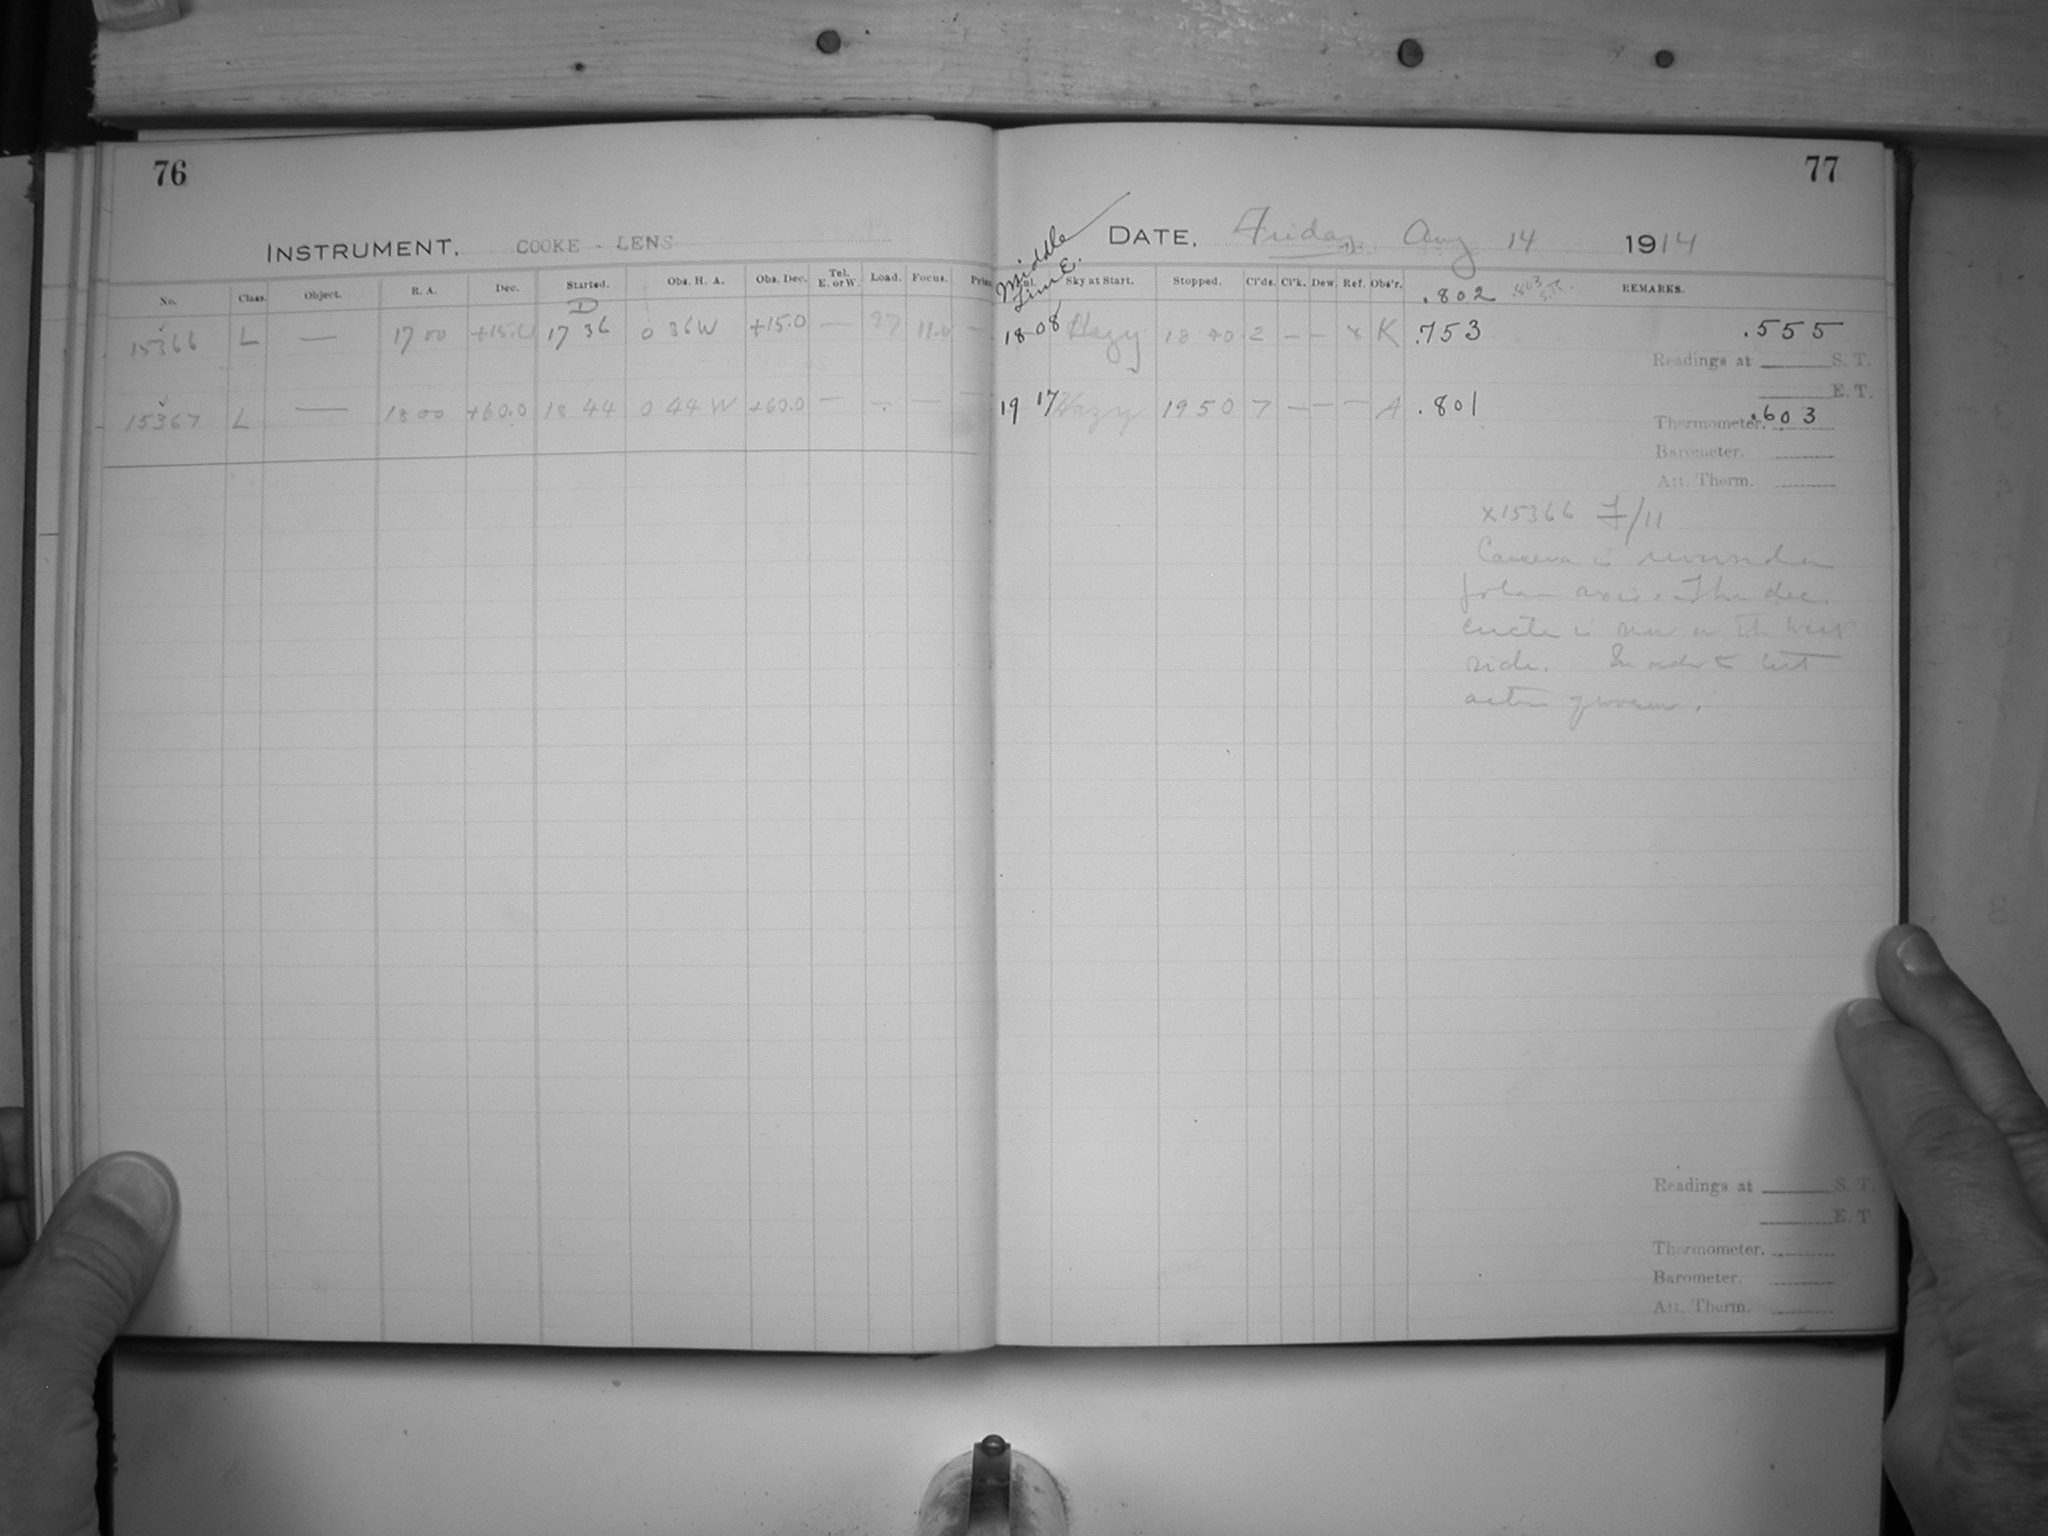 76
INSTRUMENT. COOKE - LENS
No. Class. Object. R. A. Dec. Started. Obs. H. A. Obs. Dec. Tel. E. or W. Load. Focus.
D
15366 L — 17 00 +15.0 17 36 0 36W +15.0 — 11.0 —
15367 L — 18 00 +60.0 18 44 0 44 W +60.0 — - — —
77
DATE, Friday Aug 14 1914
Middle
Time.
Sky at Start. Stopped. Cl'ds. Cl'k. Dew. Ref. Obs'r. .802 REMARKS.
18 08 Hazy 18 40 2 — — x K .753 .555
Readings at S. T.
E. T.
19 17 Hazy 19 50 7 — — — A .801
Thermometer. .603
Barometer.
Att. Therm.
x15366 F/11
Camera is reversed on
polar axis. The dec.
circle is now on the west
side. In order to test
Readings at S. T.
E. T.
Thermometer.
Barometer.
Att. Therm.